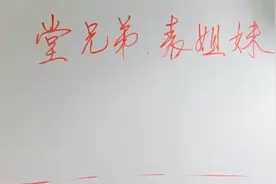 堂兄弟.表姐妹